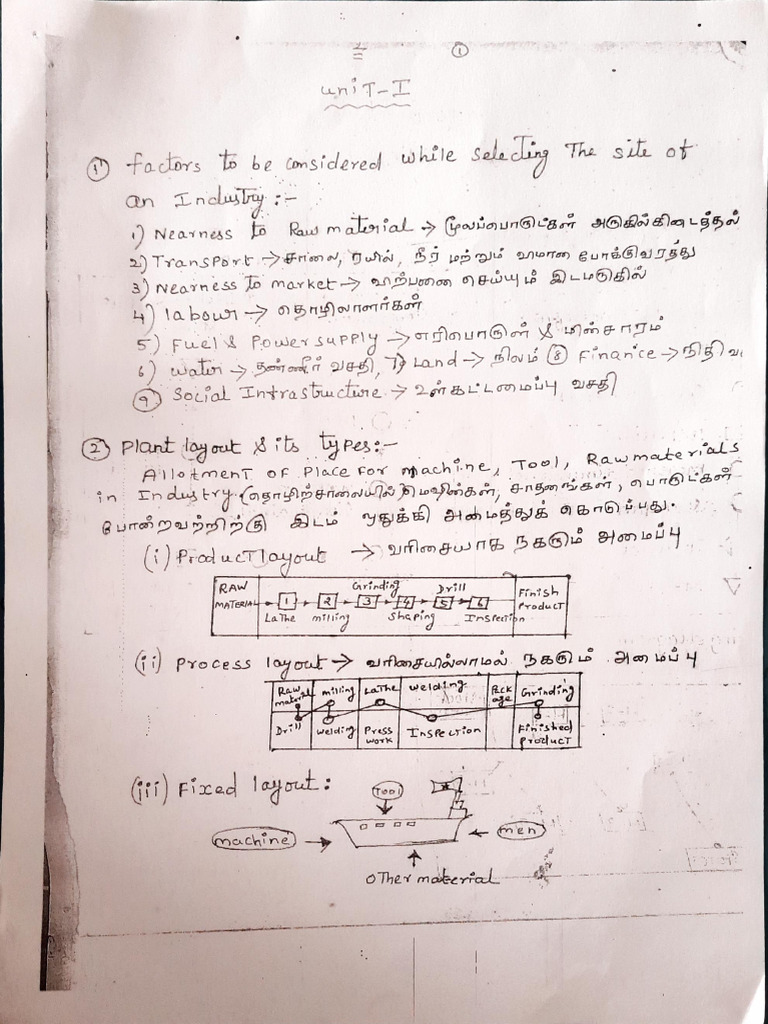 ①
Unit-I
① Factors to be Considered while selecting The site of
an Industry :-
1) Nearness to Raw material → மூலப்பொருட்கள் அருகில்கிடைத்தல்
2) Transport → சாலை, ரயில், நீர் மற்றும் வானம் போக்குவரத்து
3) Nearness to market → விற்பனை செய்யும் இடமருகில்
4) labour → தொழிலாளர்கள்
5) Fuel & Power supply → எரிபொருள் & மின்சாரம்
6) water → தண்ணீர் வசதி, 7) Land → நிலம் ⑧ Finance → நிதி வ
⑨ Social Infrastructure → உள்கட்டமைப்பு வசதி
② Plant layout & its types:-
Allotment of Place For machine, Tool, Raw materials
in Industry (தொழிற்சாலையில்) மெஷின்கள், சாதனங்கள், பொருட்கள்
போன்றவற்றிற்கு இடம் ஒதுக்கி அமைத்துக் கொடுப்பது.
(i) Product layout → வரிசையாக நகரும் அமைப்பு
Grinding Drill
RAW MATERIAL 1 2 3 4 5 6 Finish PRODUCT
Lathe milling shaping Inspection
(ii) Process layout → வரிசையில்லாமல் நகரும் அமைப்பு
Raw material milling Lathe welding Pack age Grinding
Drill welding Press work Inspection Finished product
(iii) Fixed layout:
Tool
machine → ← men
Other material